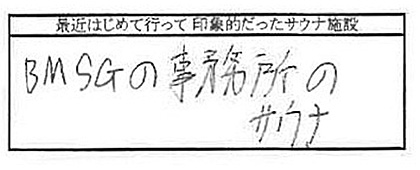 最近はじめて行って印象的だったサウナ施設
BMSGの事務所の
サウナ